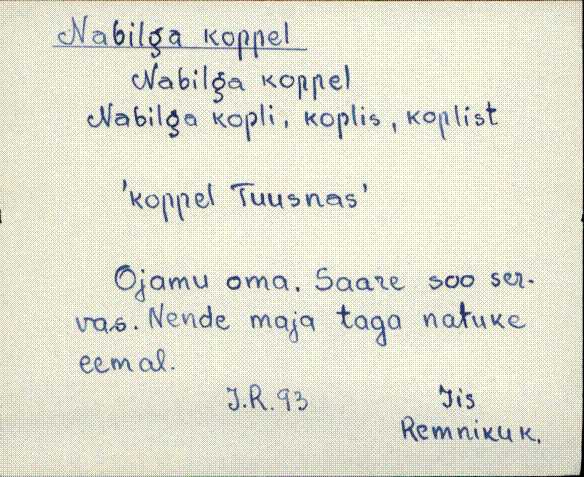 Nabilga koppel
Nabilga koppel
Nabilga kopli, koplis, koplist
'koppel Tuusnas'
Ojamu oma. Saare soo ser-
vas. Nende maja taga natuke
eemal.
J.R. 93 Iis
Remniku k.